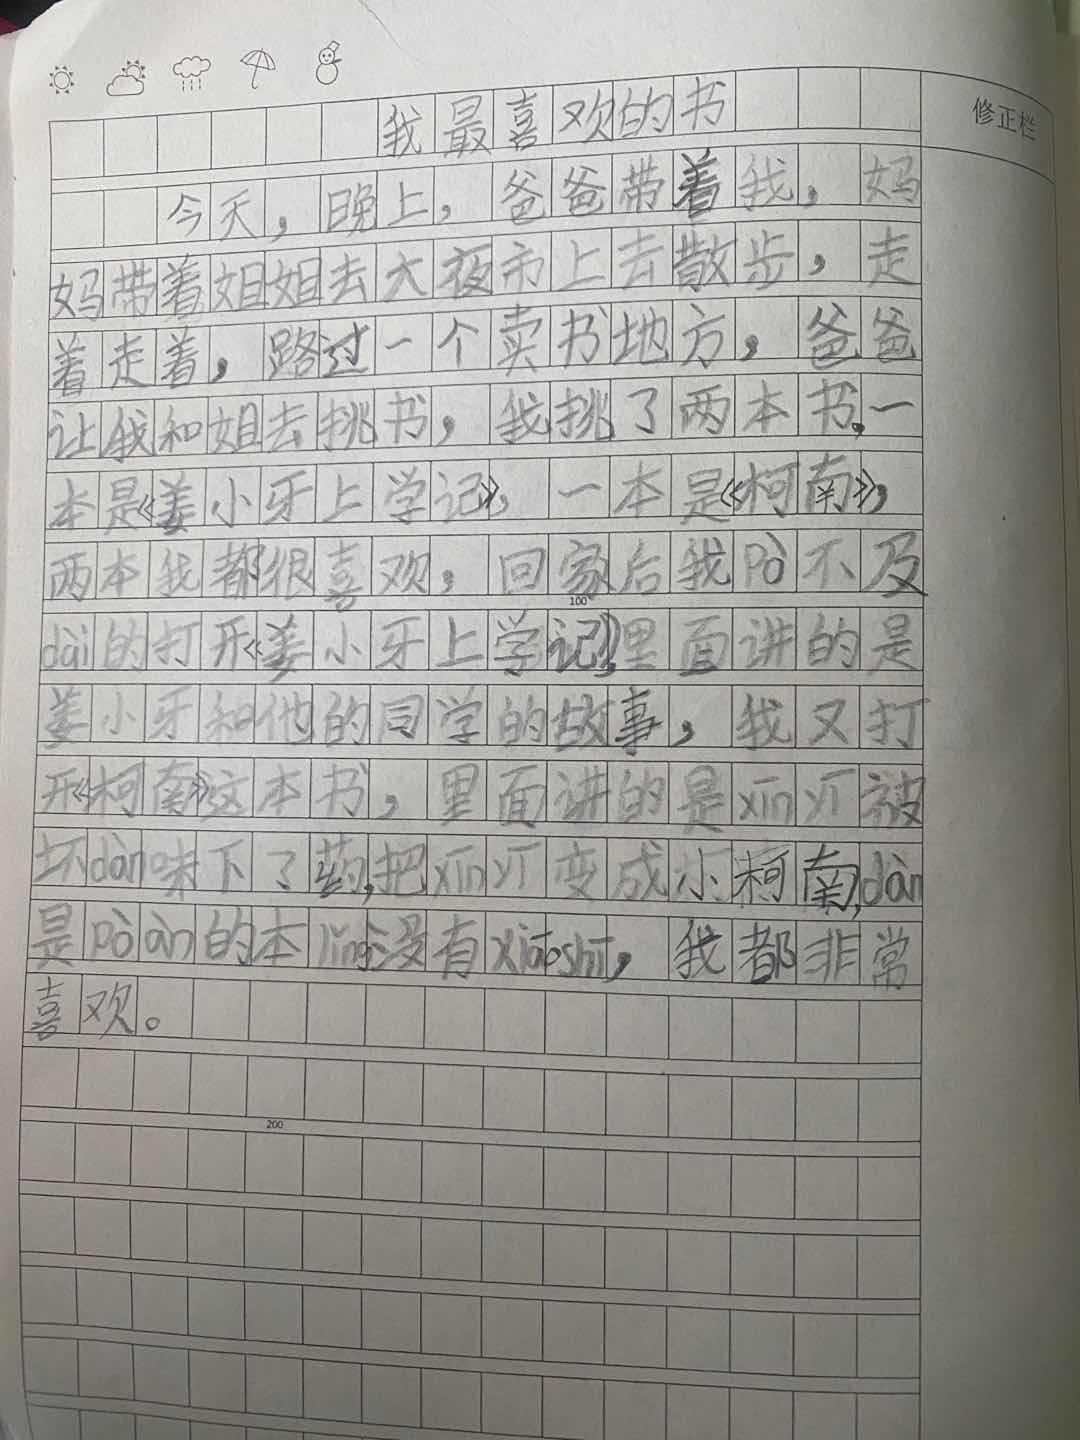 修正栏
我最喜欢的书
今天，晚上，爸爸带着我，妈
妈带着姐姐去大夜市上去散步，走
着走着，路过一个卖书地方，爸爸
让我和姐去挑书，我挑了两本书，一
本是《姜小牙上学记》，一本是《柯南》，
两本我都很喜欢，回家后我Pò不及
dài的打开《姜小牙上学记》，里面讲的是
姜小牙和他的同学的故事，我又打
开《柯南》这本书，里面讲的是xīn yī被
坏dàn味下了药，把xīn yī变成小柯南，dàn
是Pò àn的本lǐng没有xiāoshī，我都非常
喜欢。
100
200